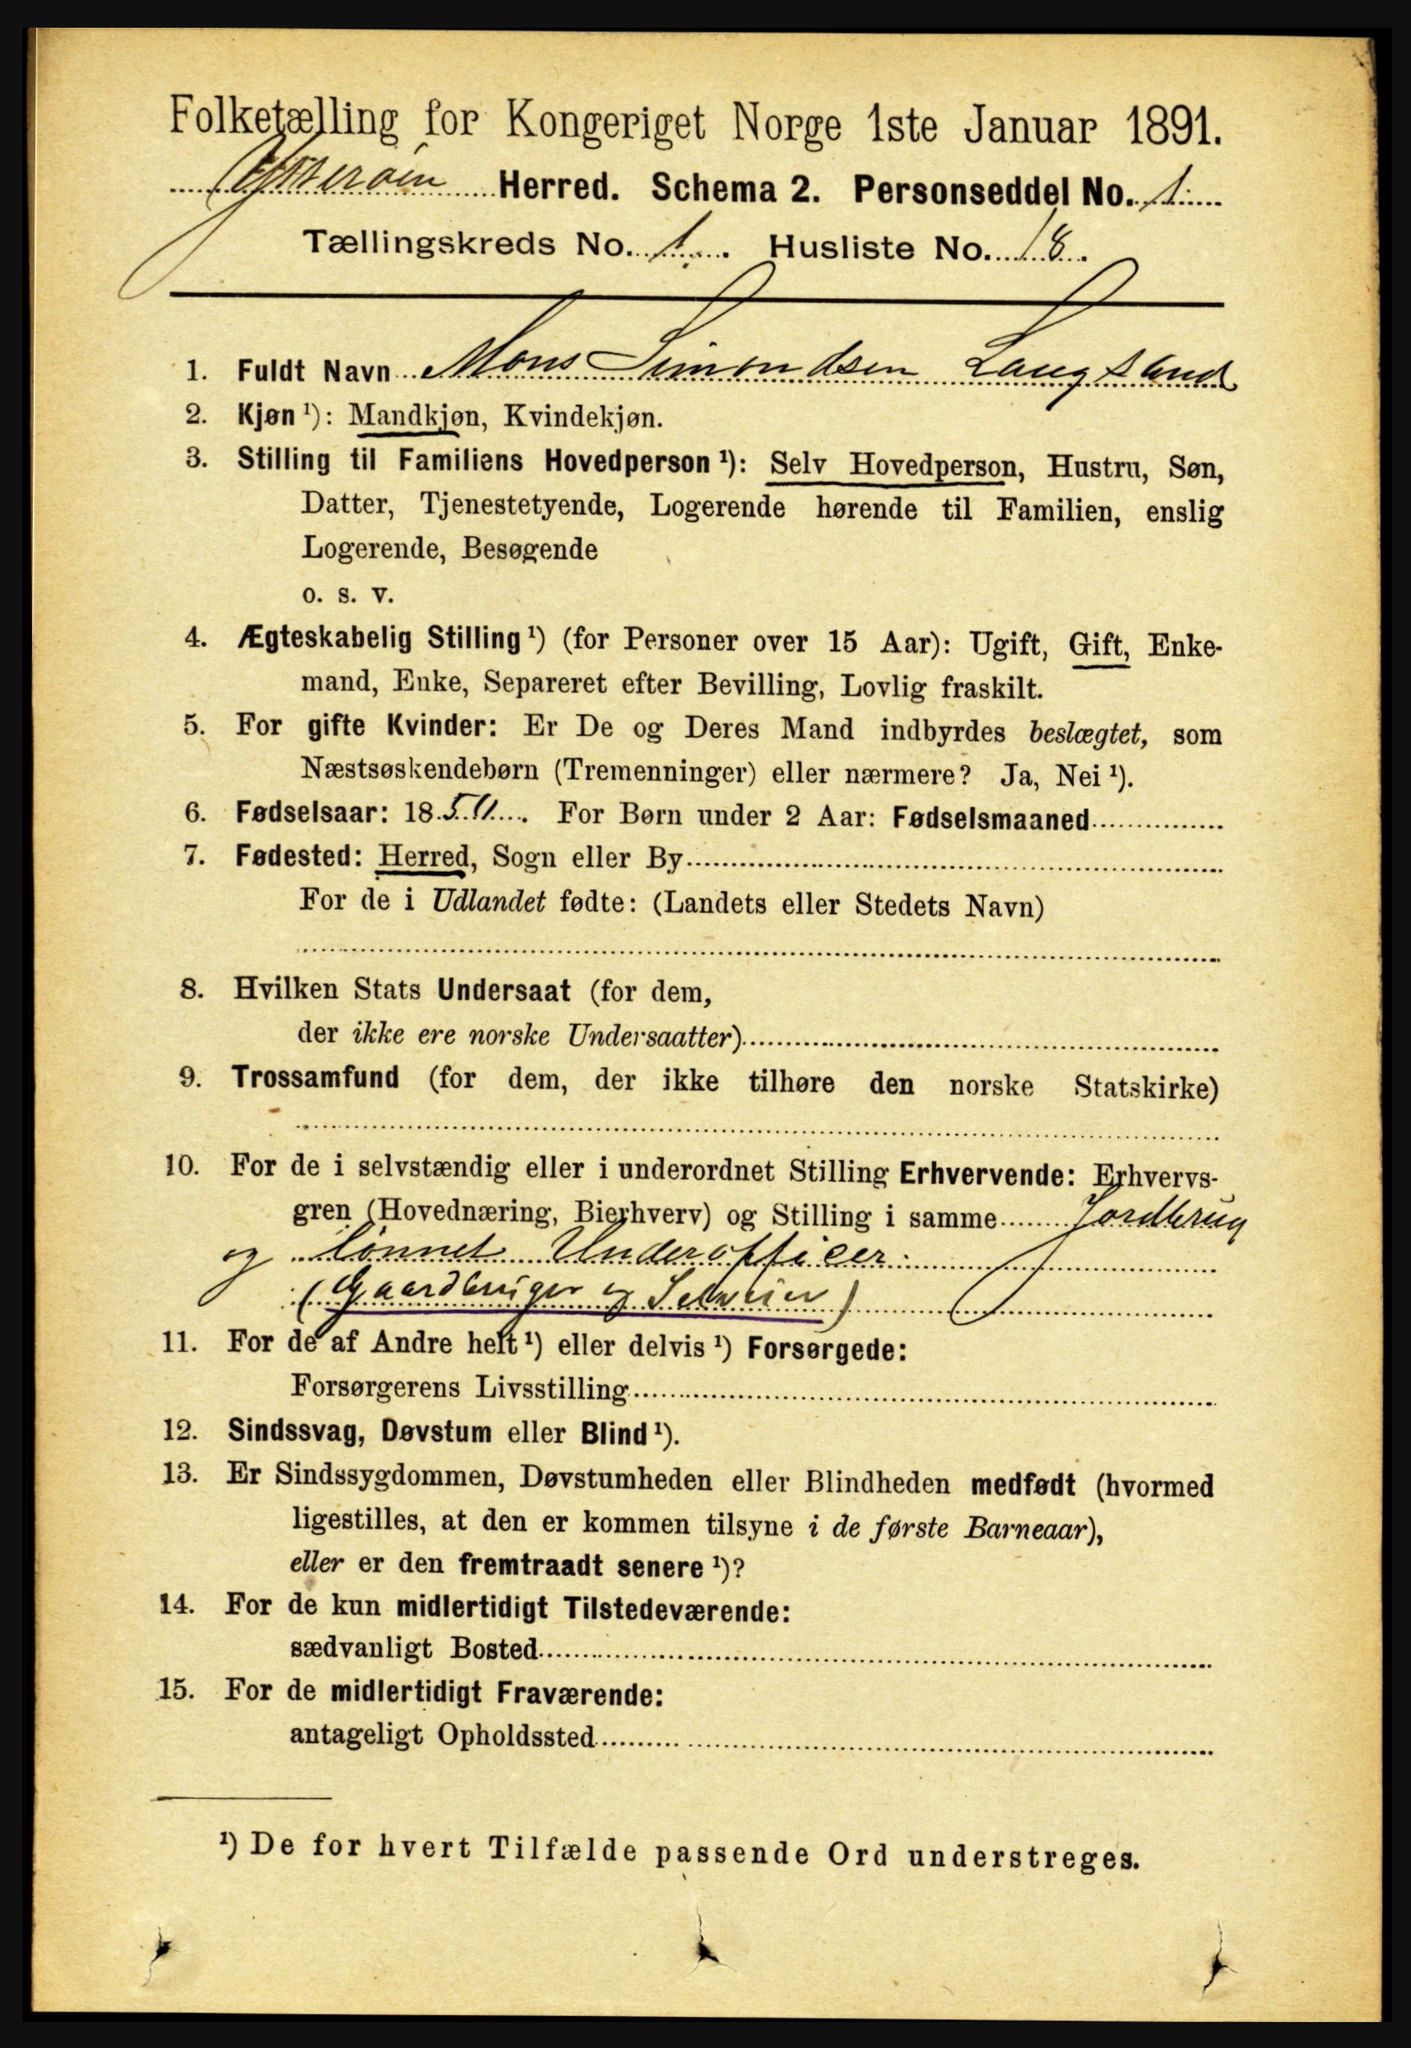 Folketælling for Kongeriget Norge 1ste Januar 1891.
Herred. Schema 2. Personseddel No. 1
Tællingskreds No. 1. Husliste No. 18.
1. Fuldt Navn Mons Simondsen Langsand
2. Kjøn ¹): Mandkjøn, Kvindekjøn.
3. Stilling til Familiens Hovedperson ¹): Selv Hovedperson, Hustru, Søn,
Datter, Tjenestetyende, Logerende hørende til Familien, enslig
Logerende, Besøgende
o. s. v.
4. Ægteskabelig Stilling ¹) (for Personer over 15 Aar): Ugift, Gift, Enke-
mand, Enke, Separeret efter Bevilling, Lovlig fraskilt.
5. For gifte Kvinder: Er De og Deres Mand indbyrdes beslægtet, som
Næstsøskendebørn (Tremenninger) eller nærmere? Ja, Nei ¹).
6. Fødselsaar: 18 For Børn under 2 Aar: Fødselsmaaned
7. Fødested: Herred, Sogn eller By
For de i Udlandet fødte: (Landets eller Stedets Navn)
8. Hvilken Stats Undersaat (for dem,
der ikke ere norske Undersaatter)
9. Trossamfund (for dem, der ikke tilhøre den norske Statskirke)
10. For de i selvstændig eller i underordnet Stilling Erhvervende: Erhvervs-
gren (Hovednæring, Bierhverv) og Stilling i samme Jordbrug
og lønnet Underofficer.
(Gaardbruger og Selveier)
11. For de af Andre helt ¹) eller delvis ¹) Forsørgede:
Forsørgerens Livsstilling
12. Sindssvag, Døvstum eller Blind ¹).
13. Er Sindssygdommen, Døvstumheden eller Blindheden medfødt (hvormed
ligestilles, at den er kommen tilsyne i de første Barneaar),
eller er den fremtraadt senere ¹)?
14. For de kun midlertidigt Tilstedeværende:
sædvanligt Bosted
15. For de midlertidigt Fraværende:
antageligt Opholdssted
¹) De for hvert Tilfælde passende Ord understreges.